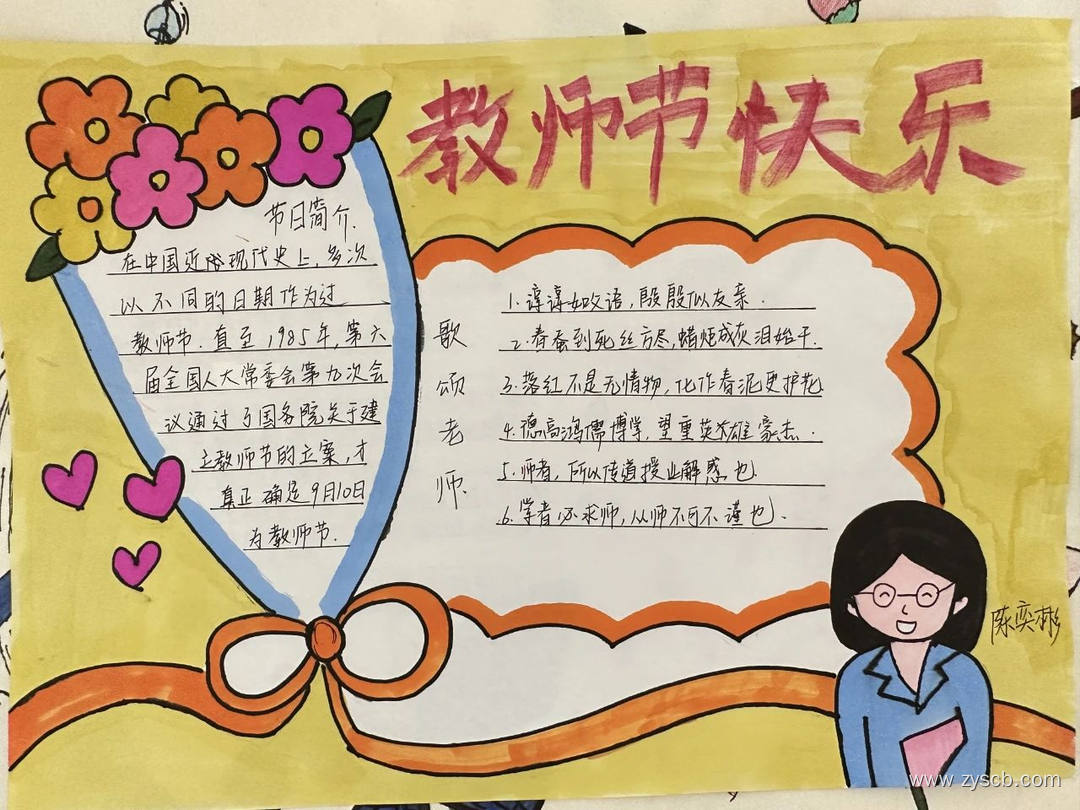 教师节快乐
节日简介.
在中国近俗现代史上,多次
以不同的日期作为过
教师节.直至1985年,第六
届全国人大常委会第九次会
议通过了国务院关于建
立教师节的立案,才
真正确定9月10日
为教师节.
歌颂老师.
1.谆谆如父语,殷殷似友亲.
2.春蚕到死丝方尽,蜡炬成灰泪始干.
3.落红不是无情物,化作春泥更护花
4.德高鸿儒博学,望重英雄豪杰.
5.师者,所以传道授业解惑也
6.学者必求师,从师不可不谨也.
陈奕彬
www.zyscb.com